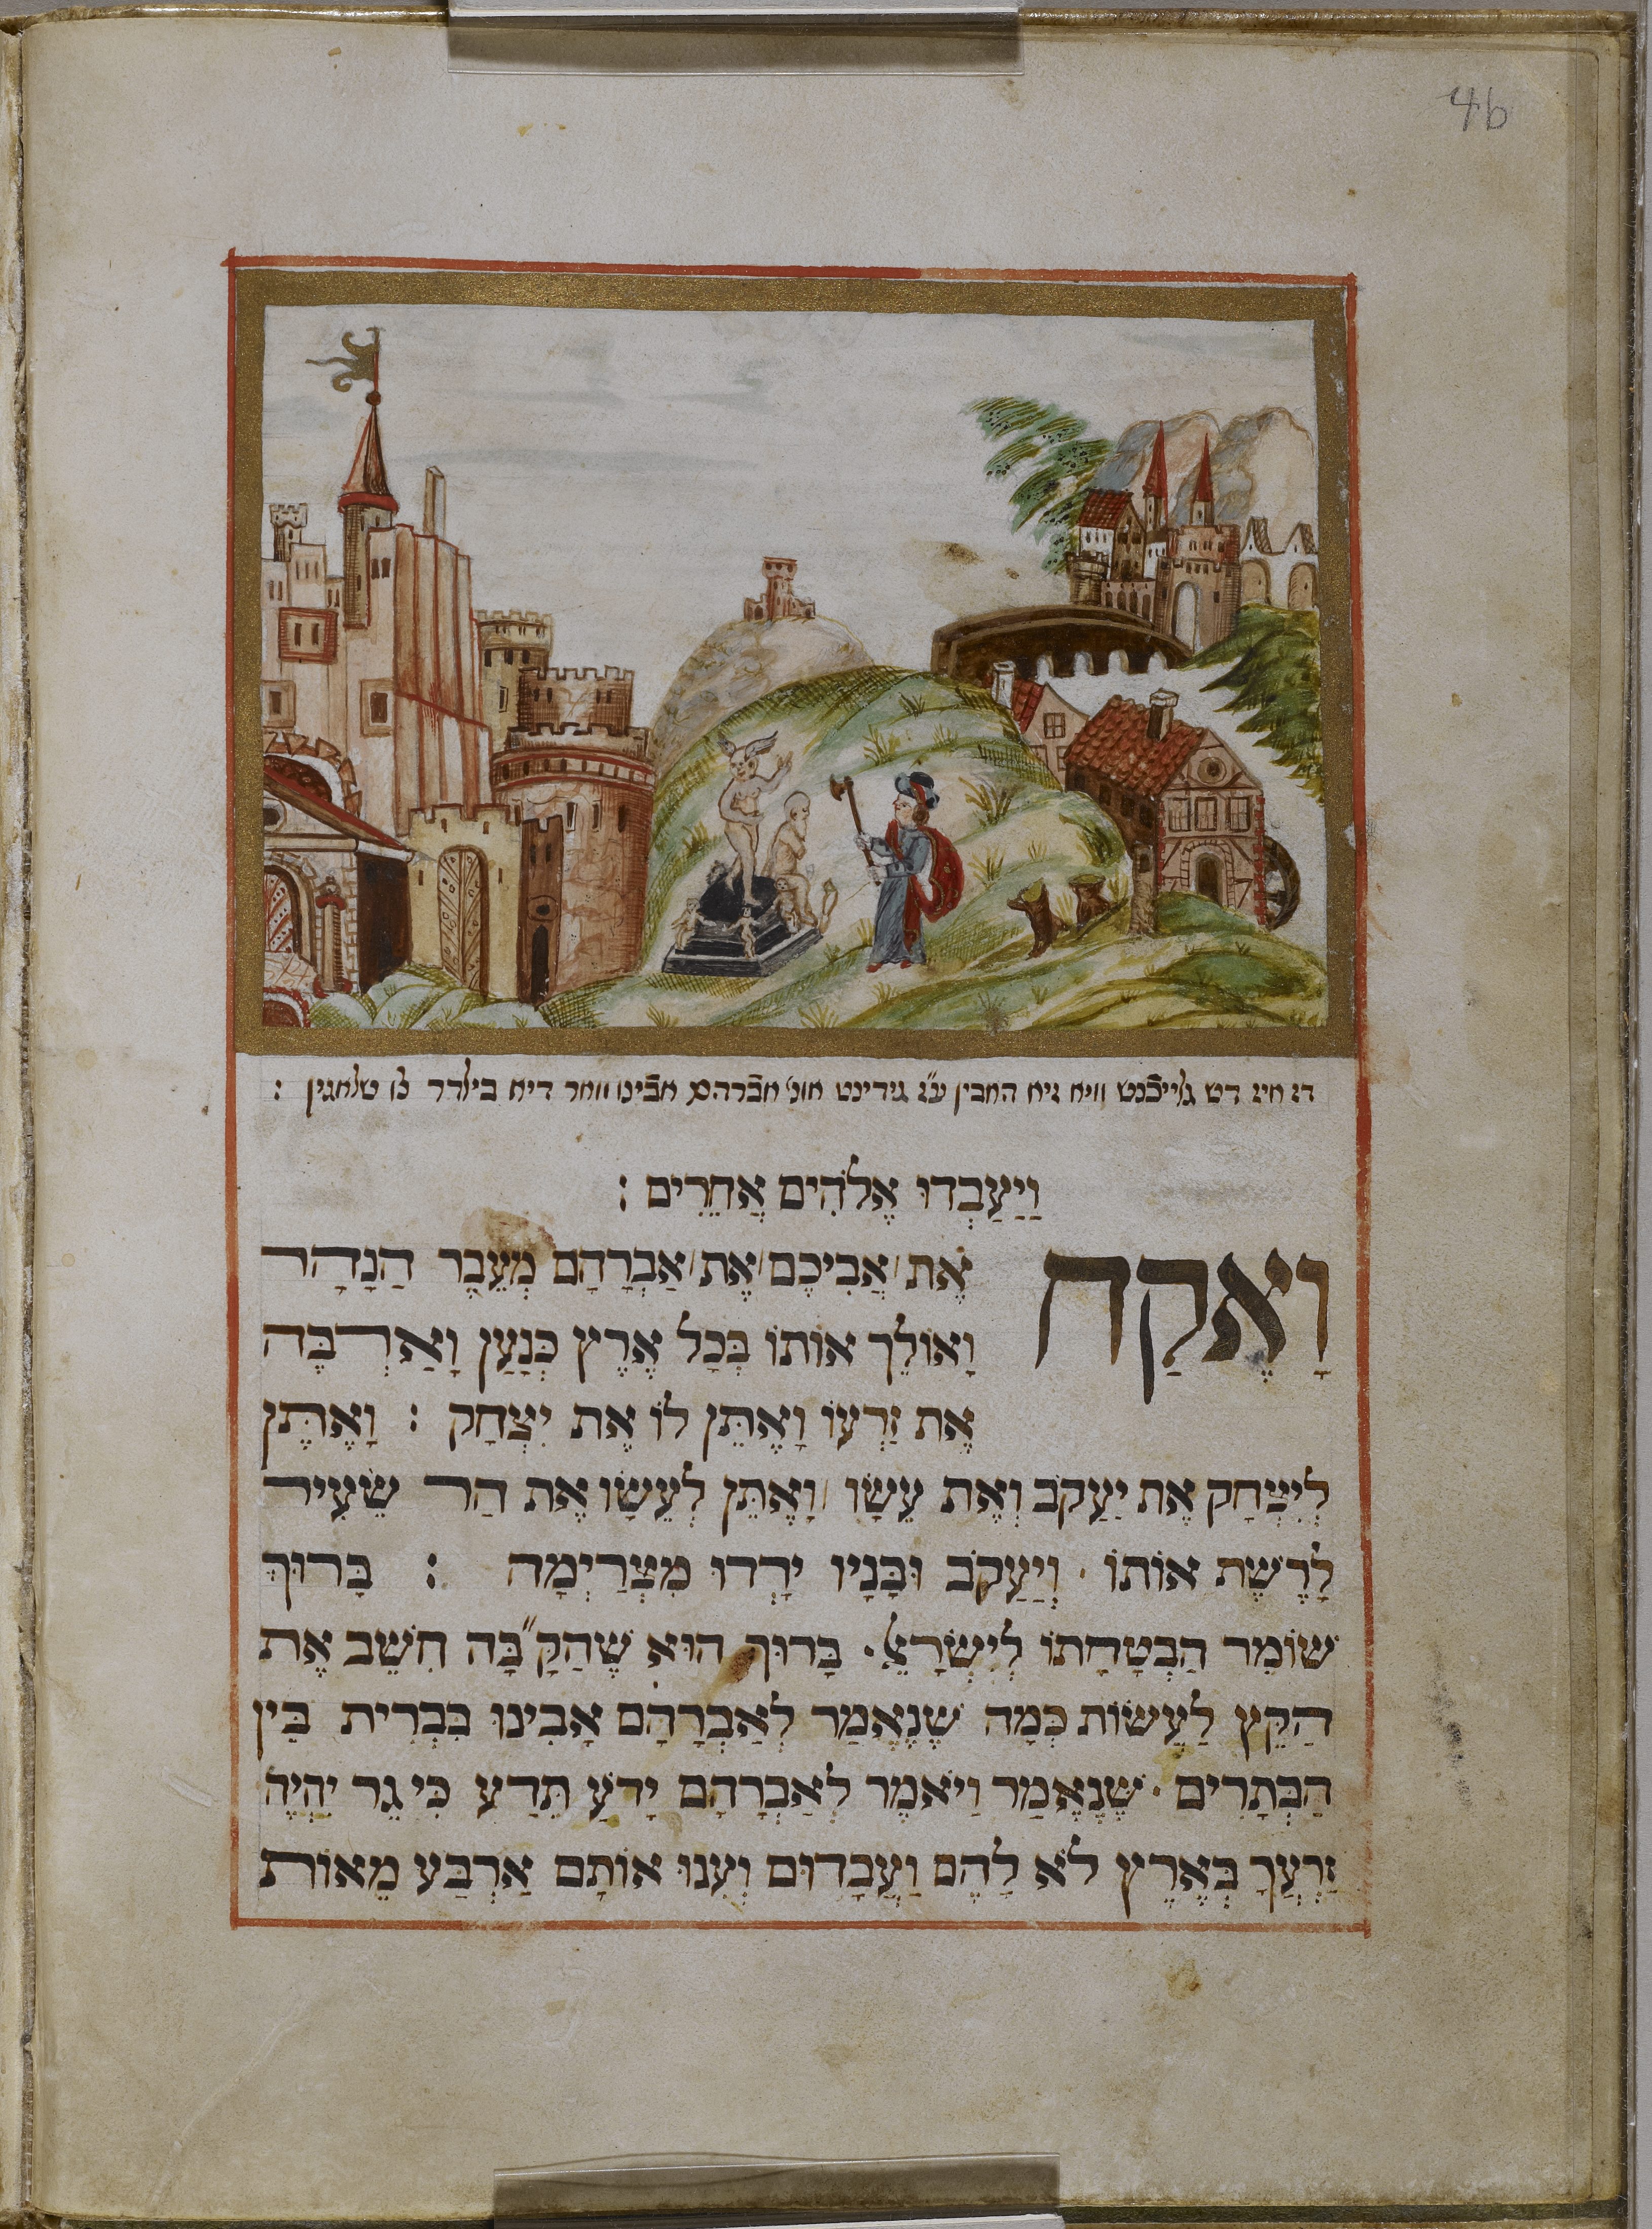 46
דז איז דש גלייכנט וויא זיא האבין ע״ז גידינט אונ׳ אברהם אבינו וואר דיא בילדר צו שלאגין :
וַיַעַבְדוּ אֱלֹהִים אֲחֵרִים :
וָאֶקַח אֶת אֲבִיכֶם אֶת אַבְרָהָם מְעֵבֶר הַנָהָר
וָאוֹלֵךְ אוֹתוֹ בְּכָל אֶרֶץ כְּנָעַן וָאַרְבֶּה
אֶת זַרְעוֹ וָאֶתֵּן לוֹ אֶת יִצְחָק : וָאֶתֵּן
לְיִצְחָק אֶת יַעֲקֹב וְאֶת עֵשָׂו וָאֶתֵּן לְעֵשָׂו אֶת הַר שֵׂעִיר
לָרֶשֶׁת אוֹתוֹ · וְיַעֲקֹב וּבָנָיו יָרְדוּ מִצְרַיְמָה : בָּרוּךְ
שׁוֹמֵר הַבְטָחָתוֹ לְיִשְׂרָאֵל · בָּרוּךְ הוּא שֶׁהַקָ״בָּה חִשֵׁב אֶת
הַקֵץ לַעֲשׂוֹת כְּמָה שֶׁנֶאֱמַר לְאַבְרָהָם אָבִינוּ בִּבְרִית בֵּין
הַבְּתָרִים · שֶׁנֶאֱמַר וַיֹאמֶר לְאַבְרָהָם יָדֹעַ תֵּדַע כִּי גֵר יִהְיֶה
זַרְעֲךָ בְּאֶרֶץ לֹא לָהֶם וַעֲבָדוּם וְעִנוּ אוֹתָם אַרְבַּע מֵאוֹת